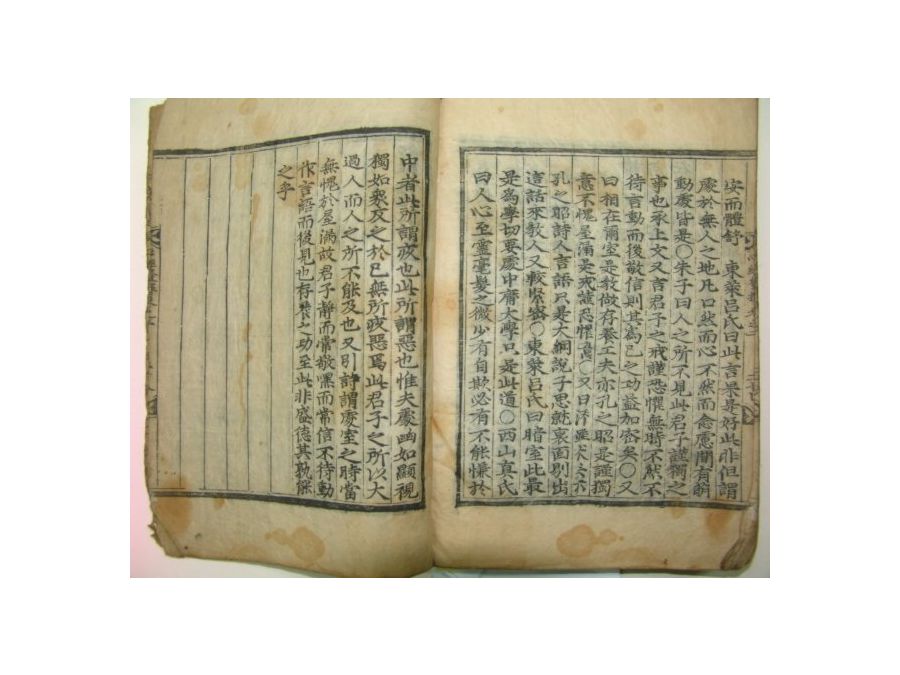 安而體舒　東萊呂氏曰此言果是好此非但謂
處於無人之地凡口然而心不然而念慮間有萌
動處皆是○朱子曰人之所不見此君子謹獨之
事也承上文又言君子之戒謹恐懼無時不然不
待言動而後敬信則其爲己之功益加密矣○又
曰相在爾室是敎做存養工夫亦孔之昭是謹獨
意不愧屋漏是戒謹恐懼
孔之昭詩人言語只是大綱說子思就裏面別出
這話來敎人又較緊密○東萊呂氏曰暗室此最
是爲學切要處中庸大學只是此道○西山眞氏
曰人心至靈毫髮之微少有自欺必有不能慊於
中者此所謂疚也此所謂惡也惟夫處幽如顯視
獨如衆反之於己無所疚惡焉此君子之所以大
過人而人之所不能及也又引詩謂處室之時當
無愧於屋漏故君子靜而常敬嘿而常信不待動
作言語而後見也存養之功至此非盛德其孰能
之乎